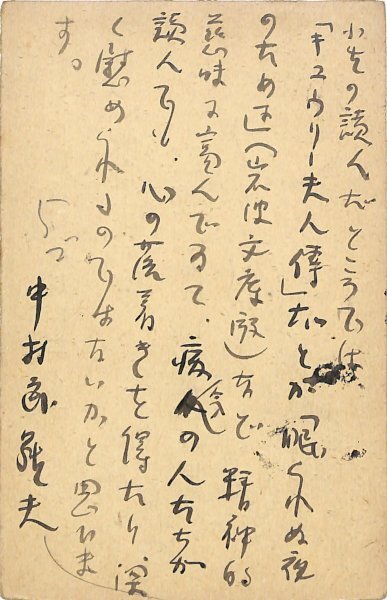 小生の読んだところでは
「キュウリー夫人傳」だとか「眠られぬ夜
のために」(岩波文庫版)などで精神的
慈味に富んでゐて、疲れた人たちが
読んでも、心の落着きを得たり、深
く慰められるのではないかと思ひま
す。
中村武羅夫